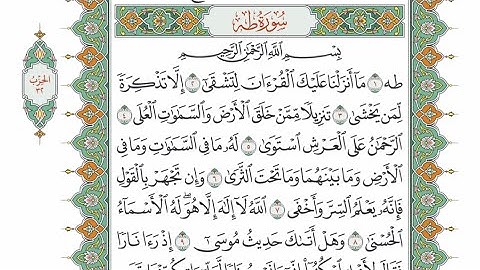 سُورَةُ طه
بِسْمِ اللَّهِ الرَّحْمَٰنِ الرَّحِيمِ
طه ١ مَا أَنزَلْنَا عَلَيْكَ الْقُرْءَانَ لِتَشْقَىٰ ٢ إِلَّا تَذْكِرَةً
لِّمَن يَخْشَىٰ ٣ تَنزِيلًا مِّمَّنْ خَلَقَ الْأَرْضَ وَالسَّمَٰوَٰتِ الْعُلَى ٤
الرَّحْمَٰنُ عَلَى الْعَرْشِ اسْتَوَىٰ ٥ لَهُ مَا فِي السَّمَٰوَٰتِ وَمَا فِي
الْأَرْضِ وَمَا بَيْنَهُمَا وَمَا تَحْتَ الثَّرَىٰ ٦ وَإِن تَجْهَرْ بِالْقَوْلِ
فَإِنَّهُ يَعْلَمُ السِّرَّ وَأَخْفَى ٧ اللَّهُ لَا إِلَٰهَ إِلَّا هُوَ لَهُ الْأَسْمَاءُ
الْحُسْنَىٰ ٨ وَهَلْ أَتَىٰكَ حَدِيثُ مُوسَىٰ ٩ إِذْ رَءَا نَارًا
الحزب
٣٢